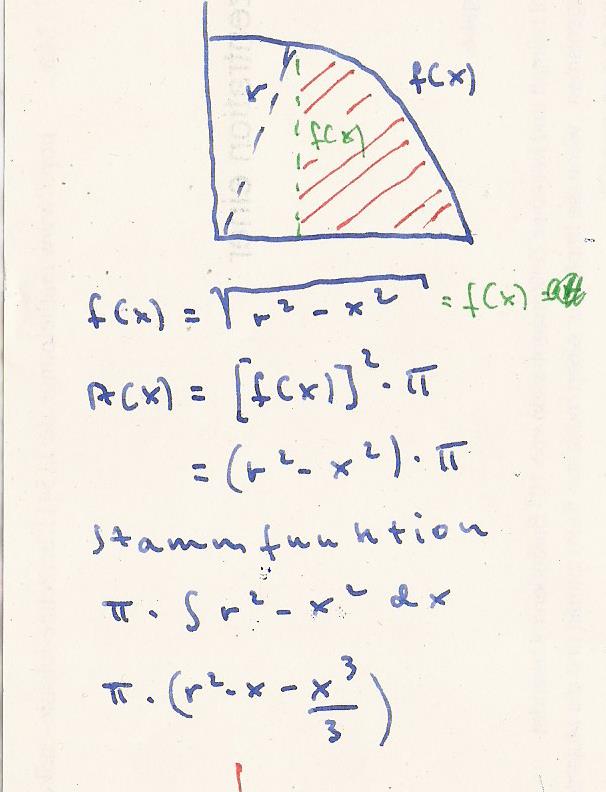 f(x)
r
f(x)
f(x) = √(r² - x²) = f(x)
A(x) = [f(x)]² · π
= (r² - x²) · π
Stammfunktion
π · ∫ r² - x² dx
π · (r² · x - x³/3)